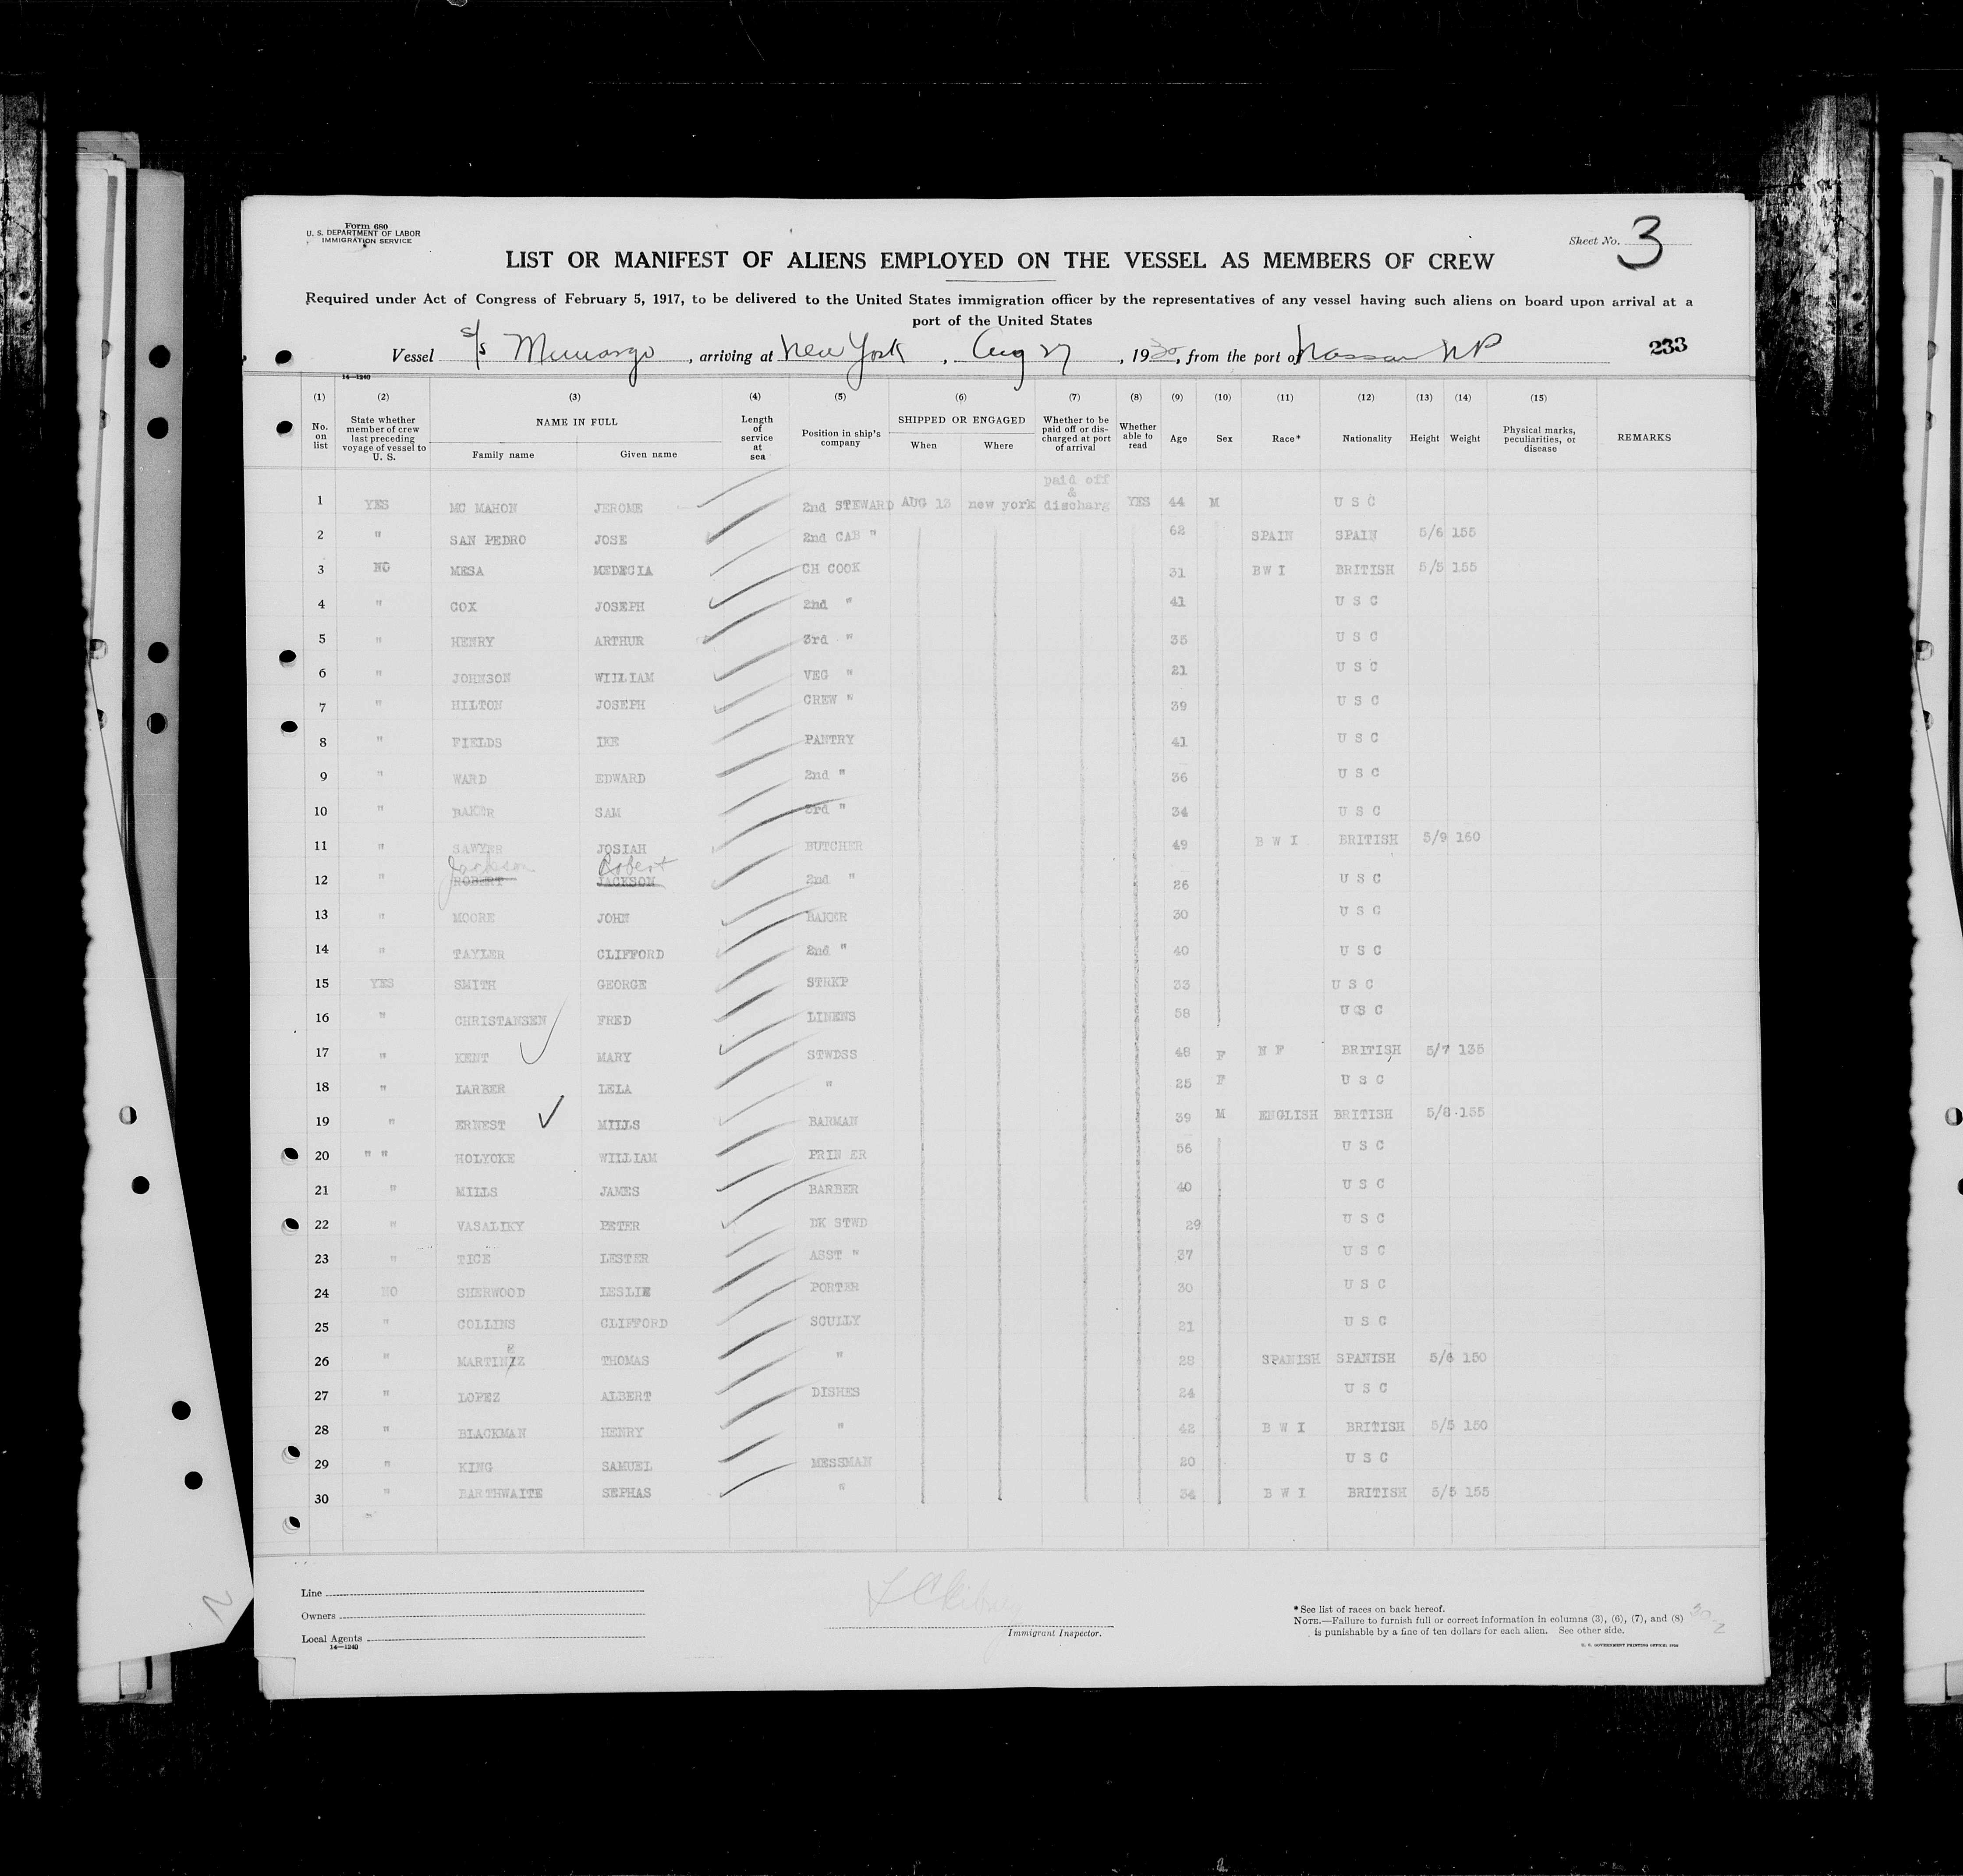 Form 680
U. S. DEPARTMENT OF LABOR
IMMIGRATION SERVICE
Sheet No. 3
LIST OR MANIFEST OF ALIENS EMPLOYED ON THE VESSEL AS MEMBERS OF CREW
Required under Act of Congress of February 5, 1917, to be delivered to the United States immigration officer by the representatives of any vessel having such aliens on board upon arrival at a
port of the United States
Vessel s/s Munargo, arriving at New York, Aug 27, 1930, from the port of Nassau NP 233
14—1240
(1) (2) (3) (4) (5) (6) (7) (8) (9) (10) (11) (12) (13) (14) (15)
No. on list State whether member of crew last preceding voyage of vessel to U. S. NAME IN FULL Family name Given name Length of service at sea Position in ship's company SHIPPED OR ENGAGED When Where Whether to be paid off or discharged at port of arrival Whether able to read Age Sex Race* Nationality Height Weight Physical marks, peculiarities, or disease REMARKS
1 YES MC MAHON JEROME 2nd STEWARD AUG 13 new york paid off & discharg YES 44 M U S C
2 " SAN PEDRO JOSE 2nd CAB " 62 SPAIN SPAIN 5/6 155
3 NO MESA MEDECIA CH COOK 31 BW I BRITISH 5/5 155
4 " COX JOSEPH 2nd " 41 U S C
5 " HENRY ARTHUR 3rd " 35 U S C
6 " JOHNSON WIILIAM VEG " 21 U S C
7 " HILTON JOSEPH CREW " 39 U S C
8 " FIELDS IKE PANTRY 41 U S C
9 " WARD EDWARD 2nd " 36 U S C
10 " BAKER SAM 3rd " 34 U S C
11 " SAWYER JOSIAH BUTCHER 49 B W I BRITISH 5/9 160
Jackson Robert
12 " ROBERT JACKSON 2nd " 26 U S C
13 " MOORE JOHN BAKER 30 U S C
14 " TAYLER CLIFFORD 2nd " 40 U S C
15 YES SMITH GEORGE STRKP 33 U S C
16 " CHRISTANSEN FRED LINENS 58 U S C
17 " KENT MARY STWDSS 48 F N F BRITISH 5/7 135
18 " IARBER LELA " 25 F U S C
19 " ERNEST MILLS BARMAN 39 M ENGLISH BRITISH 5/8 155
20 " " HOLYOKE WILLIAM PRIN ER 56 U S C
21 " MILLS JAMES BARBER 40 U S C
22 " VASALIKY PETER DK STWD 29 U S C
23 " TICE LESTER ASST " 37 U S C
24 NO SHERWOOD LESLIE PORTER 30 U S C
25 " COLLINS CLIFFORD SCULLY 21 U S C
26 " MARTINEZ THOMAS " 28 SPANISH SPANISH 5/6 150
27 " LOPEZ ALBERT DISHES 24 U S C
28 " BLACKMAN HENRY " 42 B W I BRITISH 5/5 150
29 " KING SAMUEL MESSMAN 20 U S C
30 " BARTHWAITE SEPHAS " 34 B W I BRITISH 5/5 155
Line
Owners
Local Agents
14—1240
Immigrant Inspector.
* See list of races on back hereof.
NOTE.—Failure to furnish full or correct information in columns (3), (6), (7), and (8)
is punishable by a fine of ten dollars for each alien. See other side.